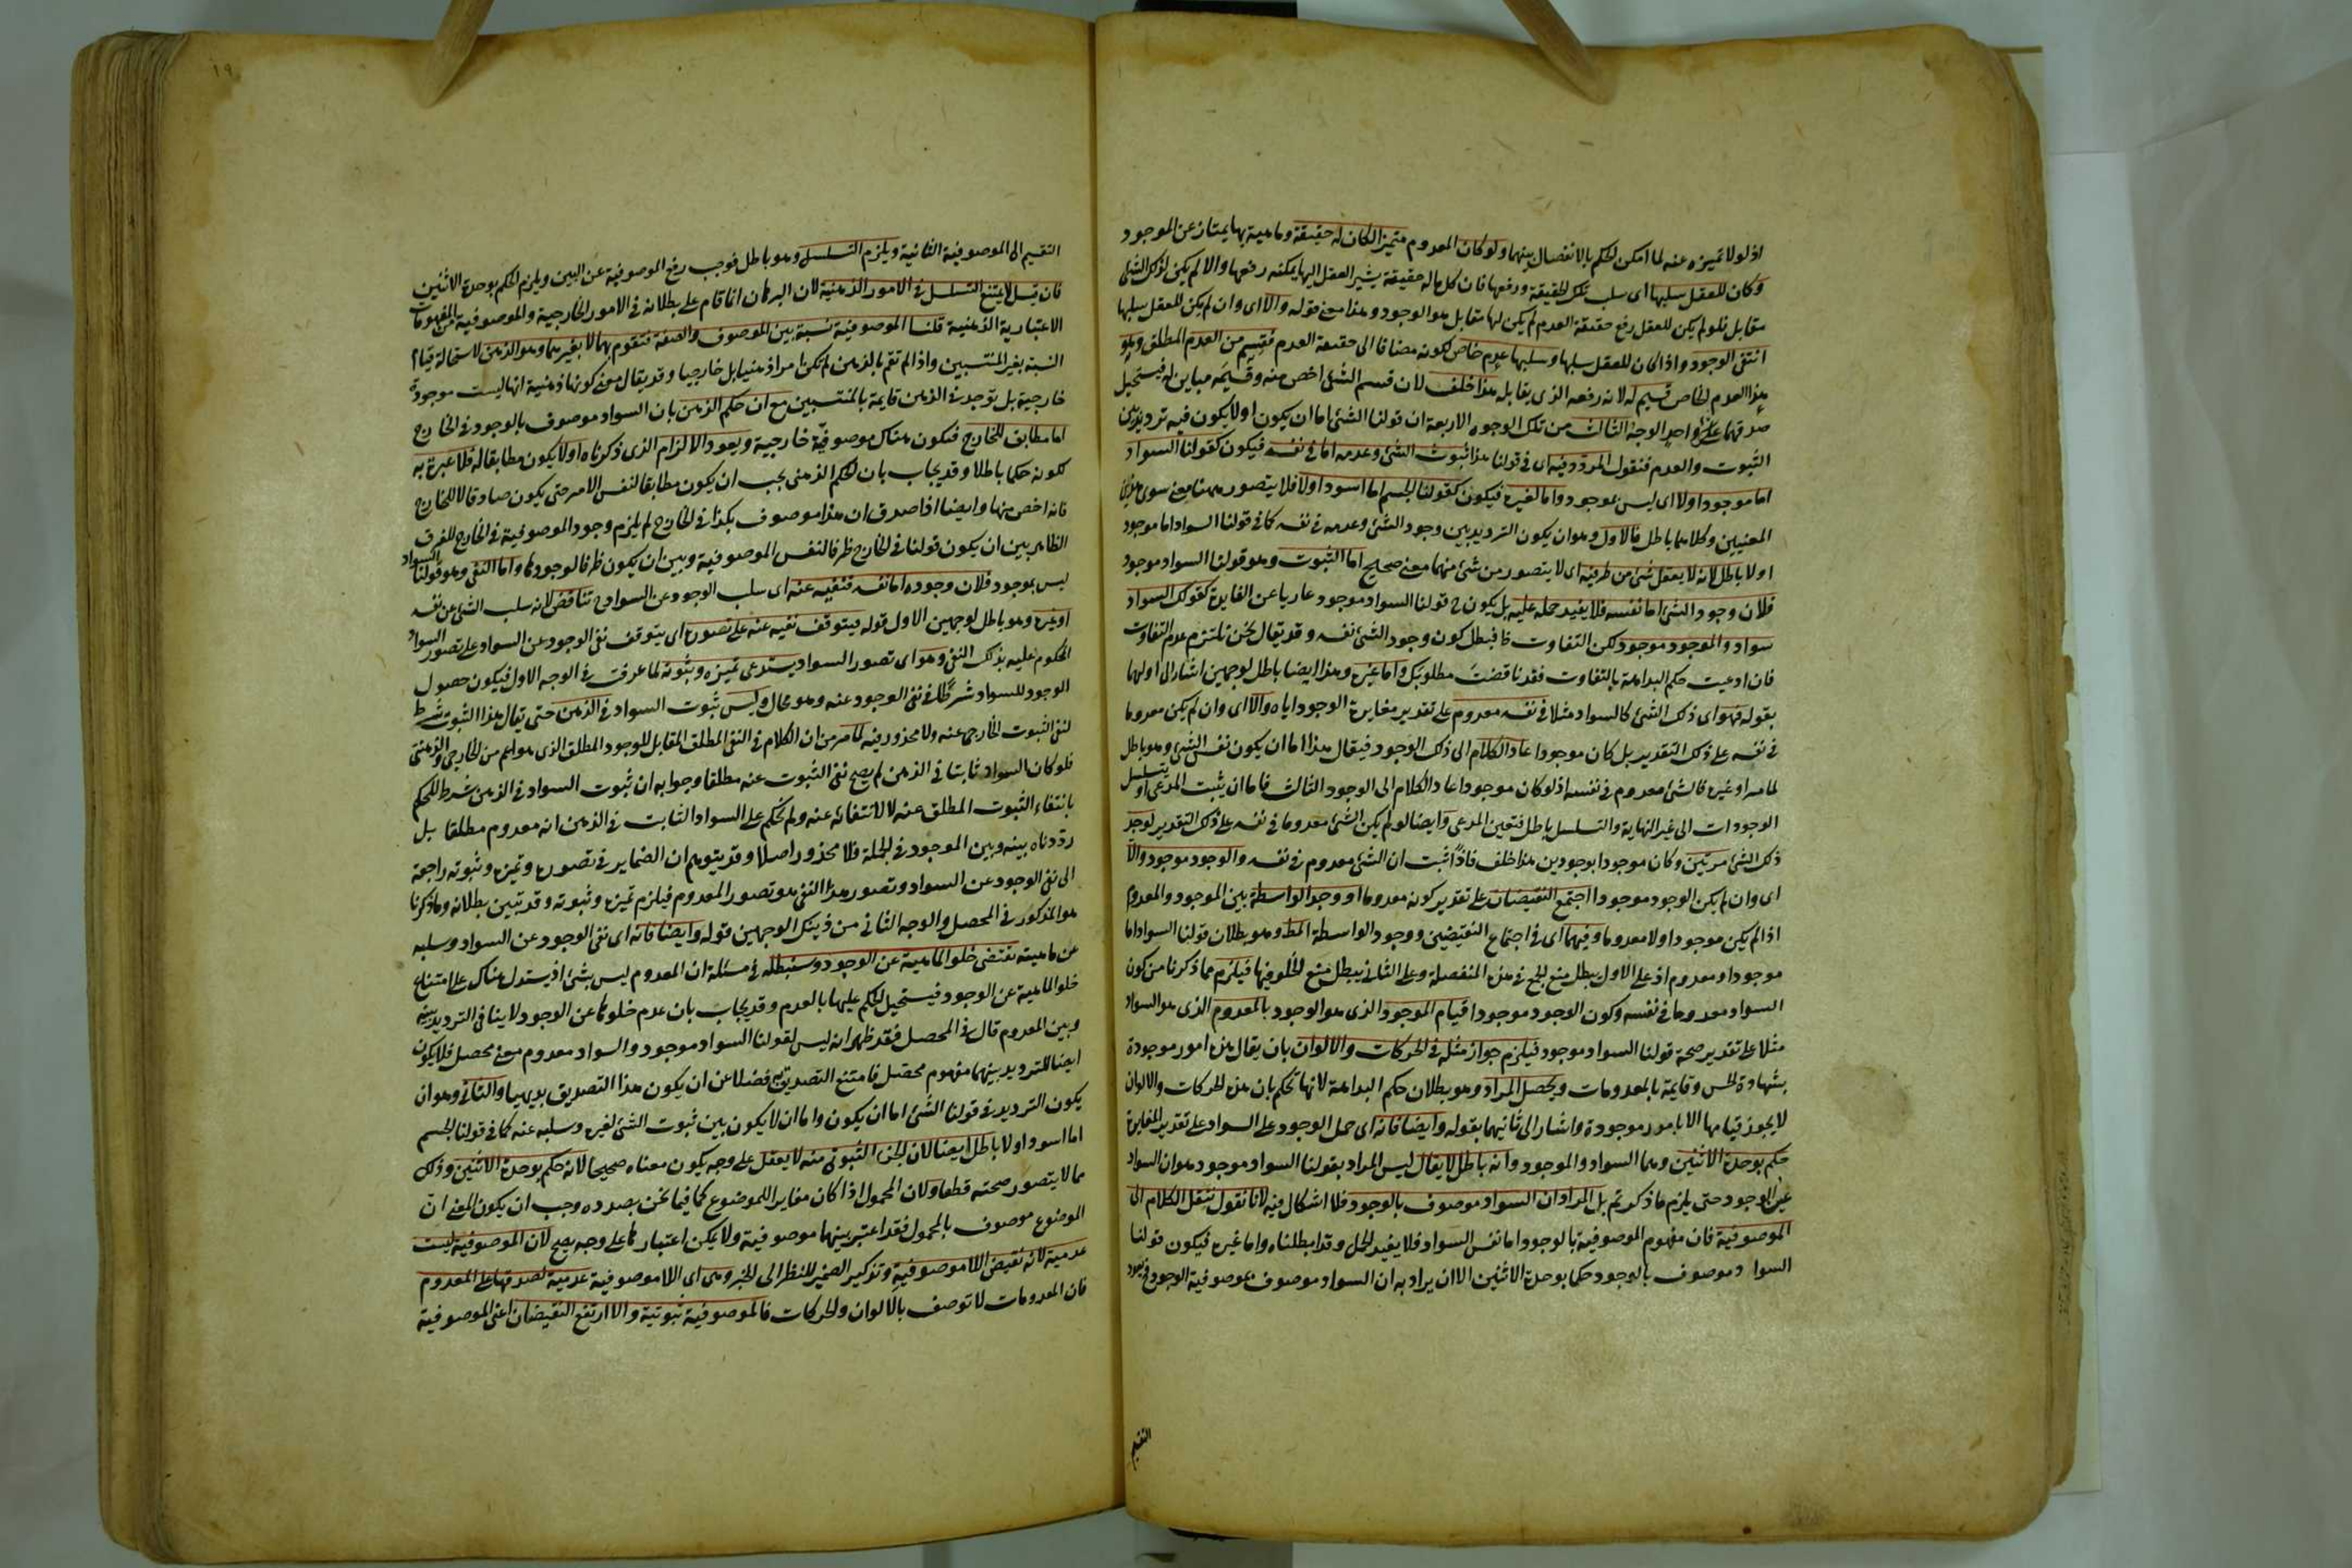 اذ لولا تميزه عنه لما امكن الحكم بالانفصال بينهما ولو كان المعدوم متميزا لكان له حقيقة وماهية بها يمتاز عن الموجود
وكان للعقل سلبها اى سلب تلك الحقيقة ورفعها فان كل ماله حقيقة يشير العقل اليها يمكنه رفعها والا لم يكن لذلك الشئ
مقابل فلو لم يكن للعقل رفع حقيقة العدم لم يكن لها مقابل هو الوجود وهذا معنى قوله والا اى وان لم يكن للعقل سلبها
انتفى الوجود واذا كان للعقل سلبها وسلبها عدم خاص لكونه مضافا الى حقيقة العدم فقسم من العدم المطلق وهو
هذا العدم الخاص قسيم له لانه رفعه الذى يقابله هذا خلف لان قسم الشئ اخص منه وقسيمه مباين له فيستحيل
صدقهما على واحد الوجه الثالث من تلك الوجوه الاربعة ان قولنا الشئ اما ان يكون او لا يكون فيه ترديد بين
الثبوت والعدم فنقول المردد فيه اى فى قولنا هذا ثبوت الشئ وعدمه اما فى نفسه فيكون كقولنا السواد
اما موجود اولا اى ليس بموجود واما لغيره فيكون كقولنا الجسم اما اسود اولا فلا يتصور ههنا معنى سوى هذين
المعنيين وكلاهما باطل فالاول وهو ان يكون الترديد بين وجود الشئ وعدمه فى نفسه كما فى قولنا السواد اما موجود
اولا باطل لانه لا يعقل شئ من طرفيه اى لا يتصور من شئ منهما معنى صحيح اما الثبوت وهو قولنا السواد موجود
فلان وجود الشئ اما نفسه فلا يفيد حمله عليه بل يكون ح قولنا السواد موجود عاريا عن الفايدة كقولك السواد
سواد والموجود موجود لكن التفاوت ظ فبطل كون وجود الشئ نفسه وقد يقال نحن نلتزم عدم التفاوت
فان ادعيت حكم البداهة بالتفاوت فقد ناقضت مطلوبك واما غيره وهذا ايضا باطل لوجهين اشار الى اولهما
بقوله فهو اى ذلك الشئ كالسواد مثلا فى نفسه معدوم على تقدير مغايرة الوجود اياه والا اى وان لم يكن معدوما
فى نفسه على ذلك التقدير بل كان موجودا عاد الكلام الى ذلك الوجود فيقال هذا اما ان يكون نفس الشئ وهو باطل
لما مر او غيره فالشئ معدوم فى نفسه اذ لو كان موجودا عاد الكلام الى الوجود الثالث فاما ان يثبت المدعى او يتسلسل
الوجودات الى غير النهاية والتسلسل باطل فتعين المدعى وايضا لو لم يكن الشئ معدوما فى نفسه على ذلك التقدير لوجد
ذلك الشئ مرتين وكان موجودا بوجودين هذا خلف فاذا ثبت ان الشئ معدوم فى نفسه والوجود موجود والا
اى وان لم يكن الوجود موجودا اجتمع النقيضان على تقدير كونه معدوما او وجد الواسطة بين الموجود والمعدوم
اذا لم يكن موجودا ولا معدوما وفيهما اى فى اجتماع النقيضين ووجود الواسطة المط وهو بطلان قولنا السواد اما
موجود او معدوم اذ على الاول يبطل منع الجمع فى هذه المنفصلة وعلى الثانى يبطل منع الخلو فيها فيلزم مما ذكرنا من كون
السواد معدوما فى نفسه وكون الوجود موجودا قيام الموجود الذى هو الوجود بالمعدوم الذى هو السواد
مثلا على تقدير صحة قولنا السواد موجود فيلزم جواز مثله فى الحركات والالوان بان يقال هذه امور موجودة
بشهادة الحس وقايمة بالمعدومات ويحصل المراد وهو بطلان حكم البداهة لانها تحكم بان هذه الحركات والالوان
لا يجوز قيامها الا بامور موجودة واشار الى ثانيهما بقوله وايضا فانه اى حمل الوجود على السواد على تقدير المغايرة
حكم بوحدة الاثنين وهما السواد والموجود وانه باطل لا يقال ليس المراد بقولنا السواد موجود هو ان السواد
عين الوجود حتى يلزم ما ذكرتم بل المراد ان السواد موصوف بالوجود فلا اشكال فيه لانا نقول ننقل الكلام الى
الموصوفية فان مفهوم الموصوفية بالوجود اما نفس السواد فلا يفيد الحمل وقد ابطلناه واما غيره فيكون قولنا
السواد موصوف بالوجود حكما بوحدة الاثنين الا ان يراد به ان السواد موصوف بموصوفية الوجود فنعود
التقسيم
١٩
التقسيم الى الموصوفية الثانية ويلزم التسلسل وهو باطل فوجب رفع الموصوفية عن البين ويلزم الحكم بوحدة الاثنين
فان قيل لا يمتنع التسلسل فى الامور الذهنية لان البرهان انما قام على بطلانه فى الامور الخارجية والموصوفية من المفهومات
الاعتبارية الذهنية قلنا الموصوفية نسبة بين الموصوف والصفة فتقوم بهما لا بغيرهما وهو الذهن لاستحالة قيام
النسبة بغير المنتسبين واذا لم تقم بالذهن لم تكن امرا ذهنيا بل خارجيا وقد يقال معنى كونها ذهنية انها ليست موجودة
خارجية بل توجد فى الذهن قايمة بالمنتسبين مع ان حكم الذهن بان السواد موصوف بالوجود فى الخارج
اما مطابق للخارج فيكون هناك موصوفية خارجية ويعود الالزام الذى ذكرناه او لا يكون مطابقا له فلا عبرة به
لكونه حكما باطلا وقد يجاب بان الحكم الذهنى يجب ان يكون مطابقا لنفس الامر حتى يكون صادقا لا للخارج
فانه اخص منها وايضا اذا صدق ان هذا موصوف بكذا فى الخارج لم يلزم وجود الموصوفية فى الخارج للفرق
الظاهر بين ان يكون قولنا فى الخارج ظرفا لنفس الموصوفية وبين ان يكون ظرفا لوجودها واما النفى وهو قولنا السواد
ليس بموجود فلان وجوده اما نفسه فنفيه عنه اى سلب الوجود عن السواد ح تناقض لانه سلب الشئ عن نفسه
او غيره وهو باطل لوجهين الاول قوله فيتوقف نفيه عنه على تصوره اى يتوقف نفى الوجود عن السواد على تصور السواد
المحكوم عليه بذلك النفى وهو اى تصور السواد يستدعى تميزه وثبوته لما عرفت فى الوجه الاول فيكون حصول
الوجود للسواد شرطا فى نفى الوجود عنه وهو محال وليس ثبوت السواد فى الذهن حتى يقال هذا الثبوت شرط
لنفى الثبوت الخارجى عنه ولا محذور فيه لما مر من ان الكلام فى النفى المطلق المقابل للوجود المطلق الذى هو اعم من الخارجى والذهنى
فلو كان السواد ثابتا فى الذهن لم يصح نفى الثبوت عنه مطلقا وجوابه ان ثبوت السواد فى الذهن شرط للحكم
بانتفاء الثبوت المطلق عنه لا لانتفائه عنه ولم نحكم على السواد الثابت فى الذهن انه معدوم مطلقا بل
رددناه بينه وبين الموجود فى الجملة فلا محذور اصلا وقد يتوهم ان الضماير فى تصوره وتميزه وثبوته راجعة
الى نفى الوجود عن السواد وتصور هذا النفى هو تصور المعدوم فيلزم تميزه وثبوته وقد تبين بطلانه وما ذكرنا
هو المذكور فى المحصل والوجه الثانى من ذينك الوجهين قوله وايضا فانه اى نفى الوجود عن السواد وسلبه
عن ماهيته تقتضى خلو الماهية عن الوجود وسنبطله فى مسئلة ان المعدوم ليس بشئ اذ يستدل هناك على امتناع
خلو الماهية عن الوجود فيستحيل الحكم عليها بالعدم وقد يجاب بان عدم خلوها عن الوجود لا ينافى الترديد بينه
وبين المعدوم قال فى المحصل فقد ظهر انه ليس لقولنا السواد موجود والسواد معدوم معنى محصل فلا يكون
ايضا للترديد بينهما مفهوم محصل فامتنع التصديق به فضلا عن ان يكون هذا التصديق بديهيا والثانى وهو ان
يكون الترديد فى قولنا الشئ اما ان يكون واما ان لا يكون بين ثبوت الشئ لغيره وسلبه عنه كما فى قولنا الجسم
اما اسود اولا باطل ايضا لان الجزء الثبوتى منه لا يعقل على وجه يكون معناه صحيحا لانه حكم بوحدة الاثنين وذلك
مما لا يتصور صحته قطعا ولان المحمول اذا كان مغايرا للموضوع كما فيما نحن بصدده وجب ان يكون المعنى ان
الموضوع موصوف بالمحمول فقد اعتبر بينهما موصوفية ولا يمكن اعتبارها على وجه يصح لان الموصوفية ليست
عدمية لانه نقيض اللاموصوفية وتذكير الضمير للنظر الى الخبر وهى اى اللاموصوفية عدمية لصدقها على المعدوم
فان المعدومات لا توصف بالالوان والحركات فالموصوفية ثبوتية والا ارتفع النقيضان اعنى الموصوفية